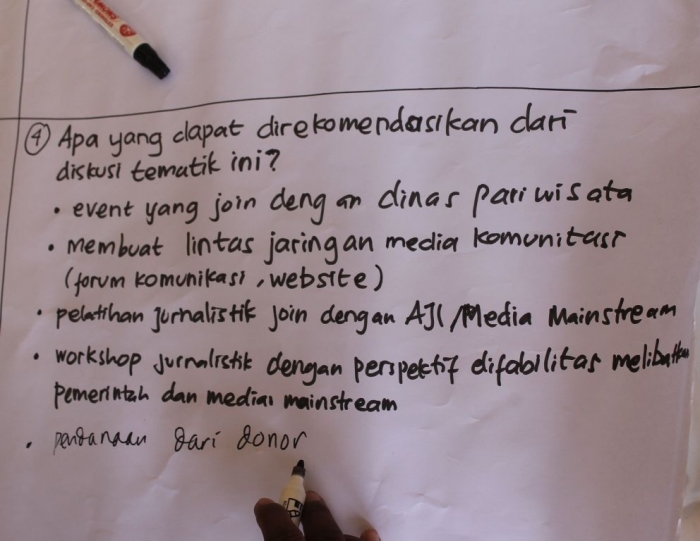 ④ Apa yang dapat direkomendasikan dari
diskusi tematik ini?
• event yang join dengan dinas pariwisata
• membuat lintas jaringan media komunitasi
(forum komunikasi, website)
• pelatihan jurnalistik join dengan AJI/Media Mainstream
• workshop jurnalistik dengan perspektif difabilitas melibatkan
pemerintah dan media mainstream
• pendanaan dari donor